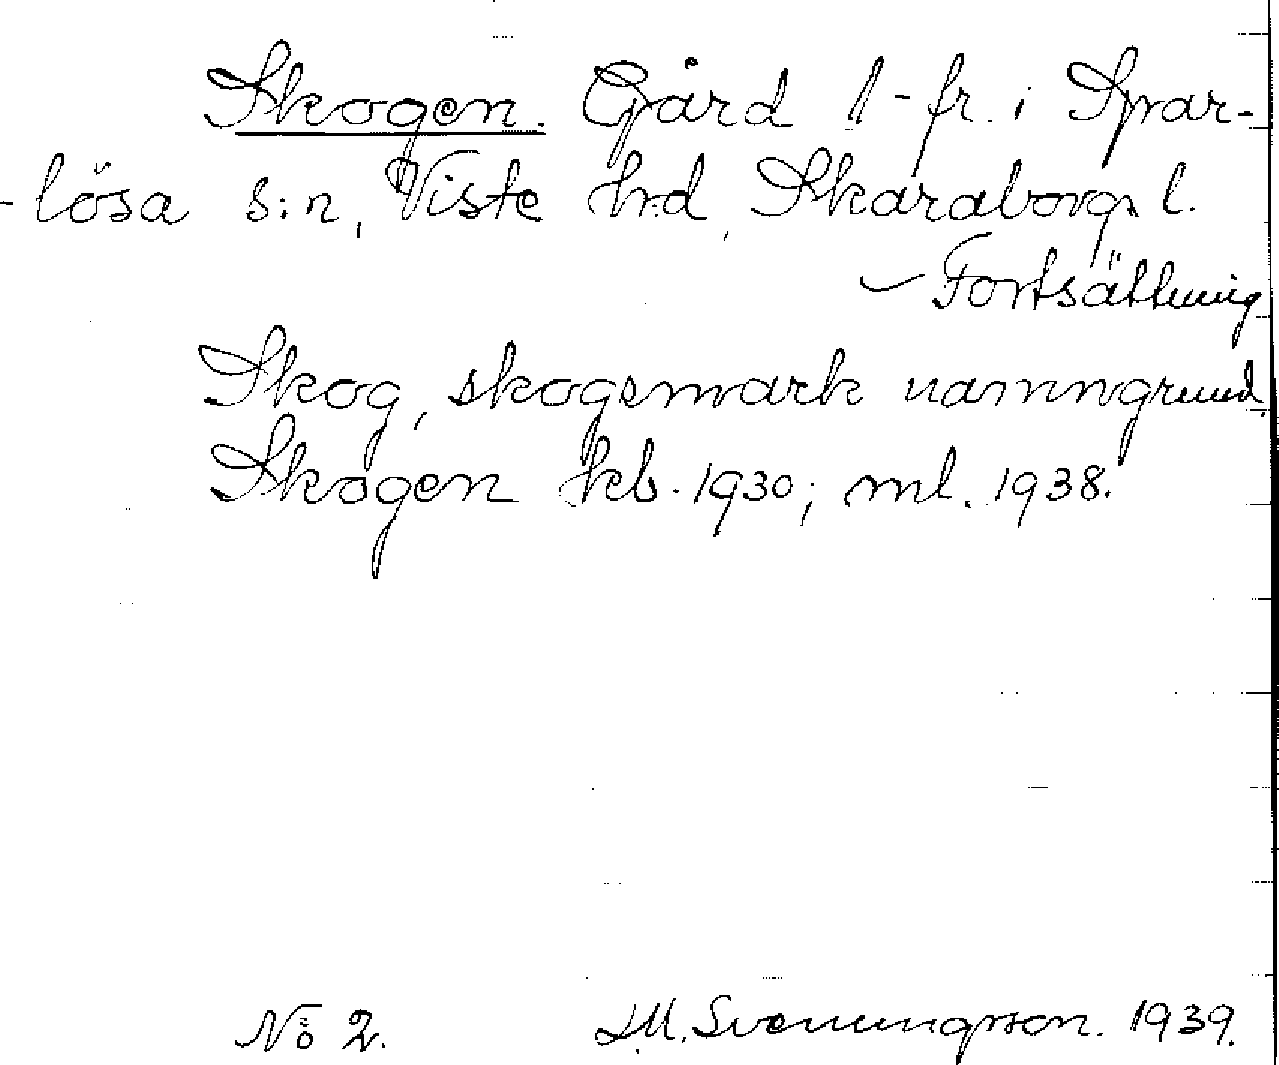 Skogen. Gård l-fr. i Spar-
-lösa s:n, Viste hd, Skaraborgs l.
– Fortsättning
Skog, skogsmark namngrund.
Skogen kb. 1930; ml. 1938.
No 2. D.M. Svenungsson. 1939.